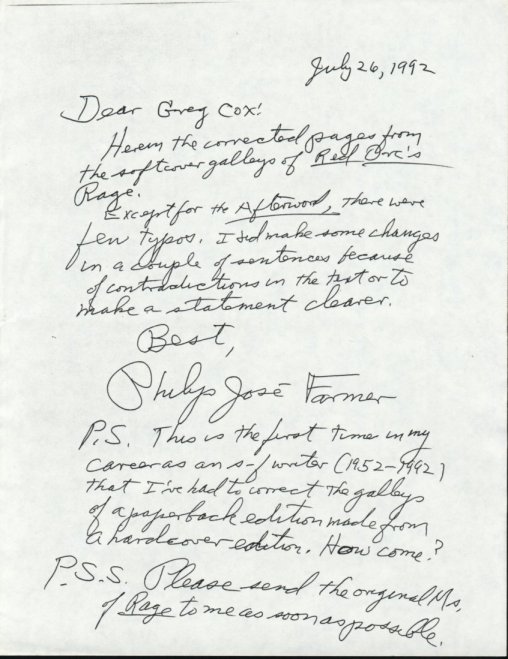 July 26, 1992
Dear Greg Cox:
Herein the corrected pages from
the softcover galleys of Red Orc's
Rage.
Except for the Afterword, there were
few typos. I did make some changes
in a couple of sentences because
of contradictions in the text or to
make a statement clearer.
Best,
Philip José Farmer
P.S. This is the first time in my
career as an s-f writer (1952-1992)
that I've had to correct the galleys
of a paperback edition made from
a hardcover edition. How come?
P.S.S. Please send the original Ms.
of Rage to me as soon as possible.